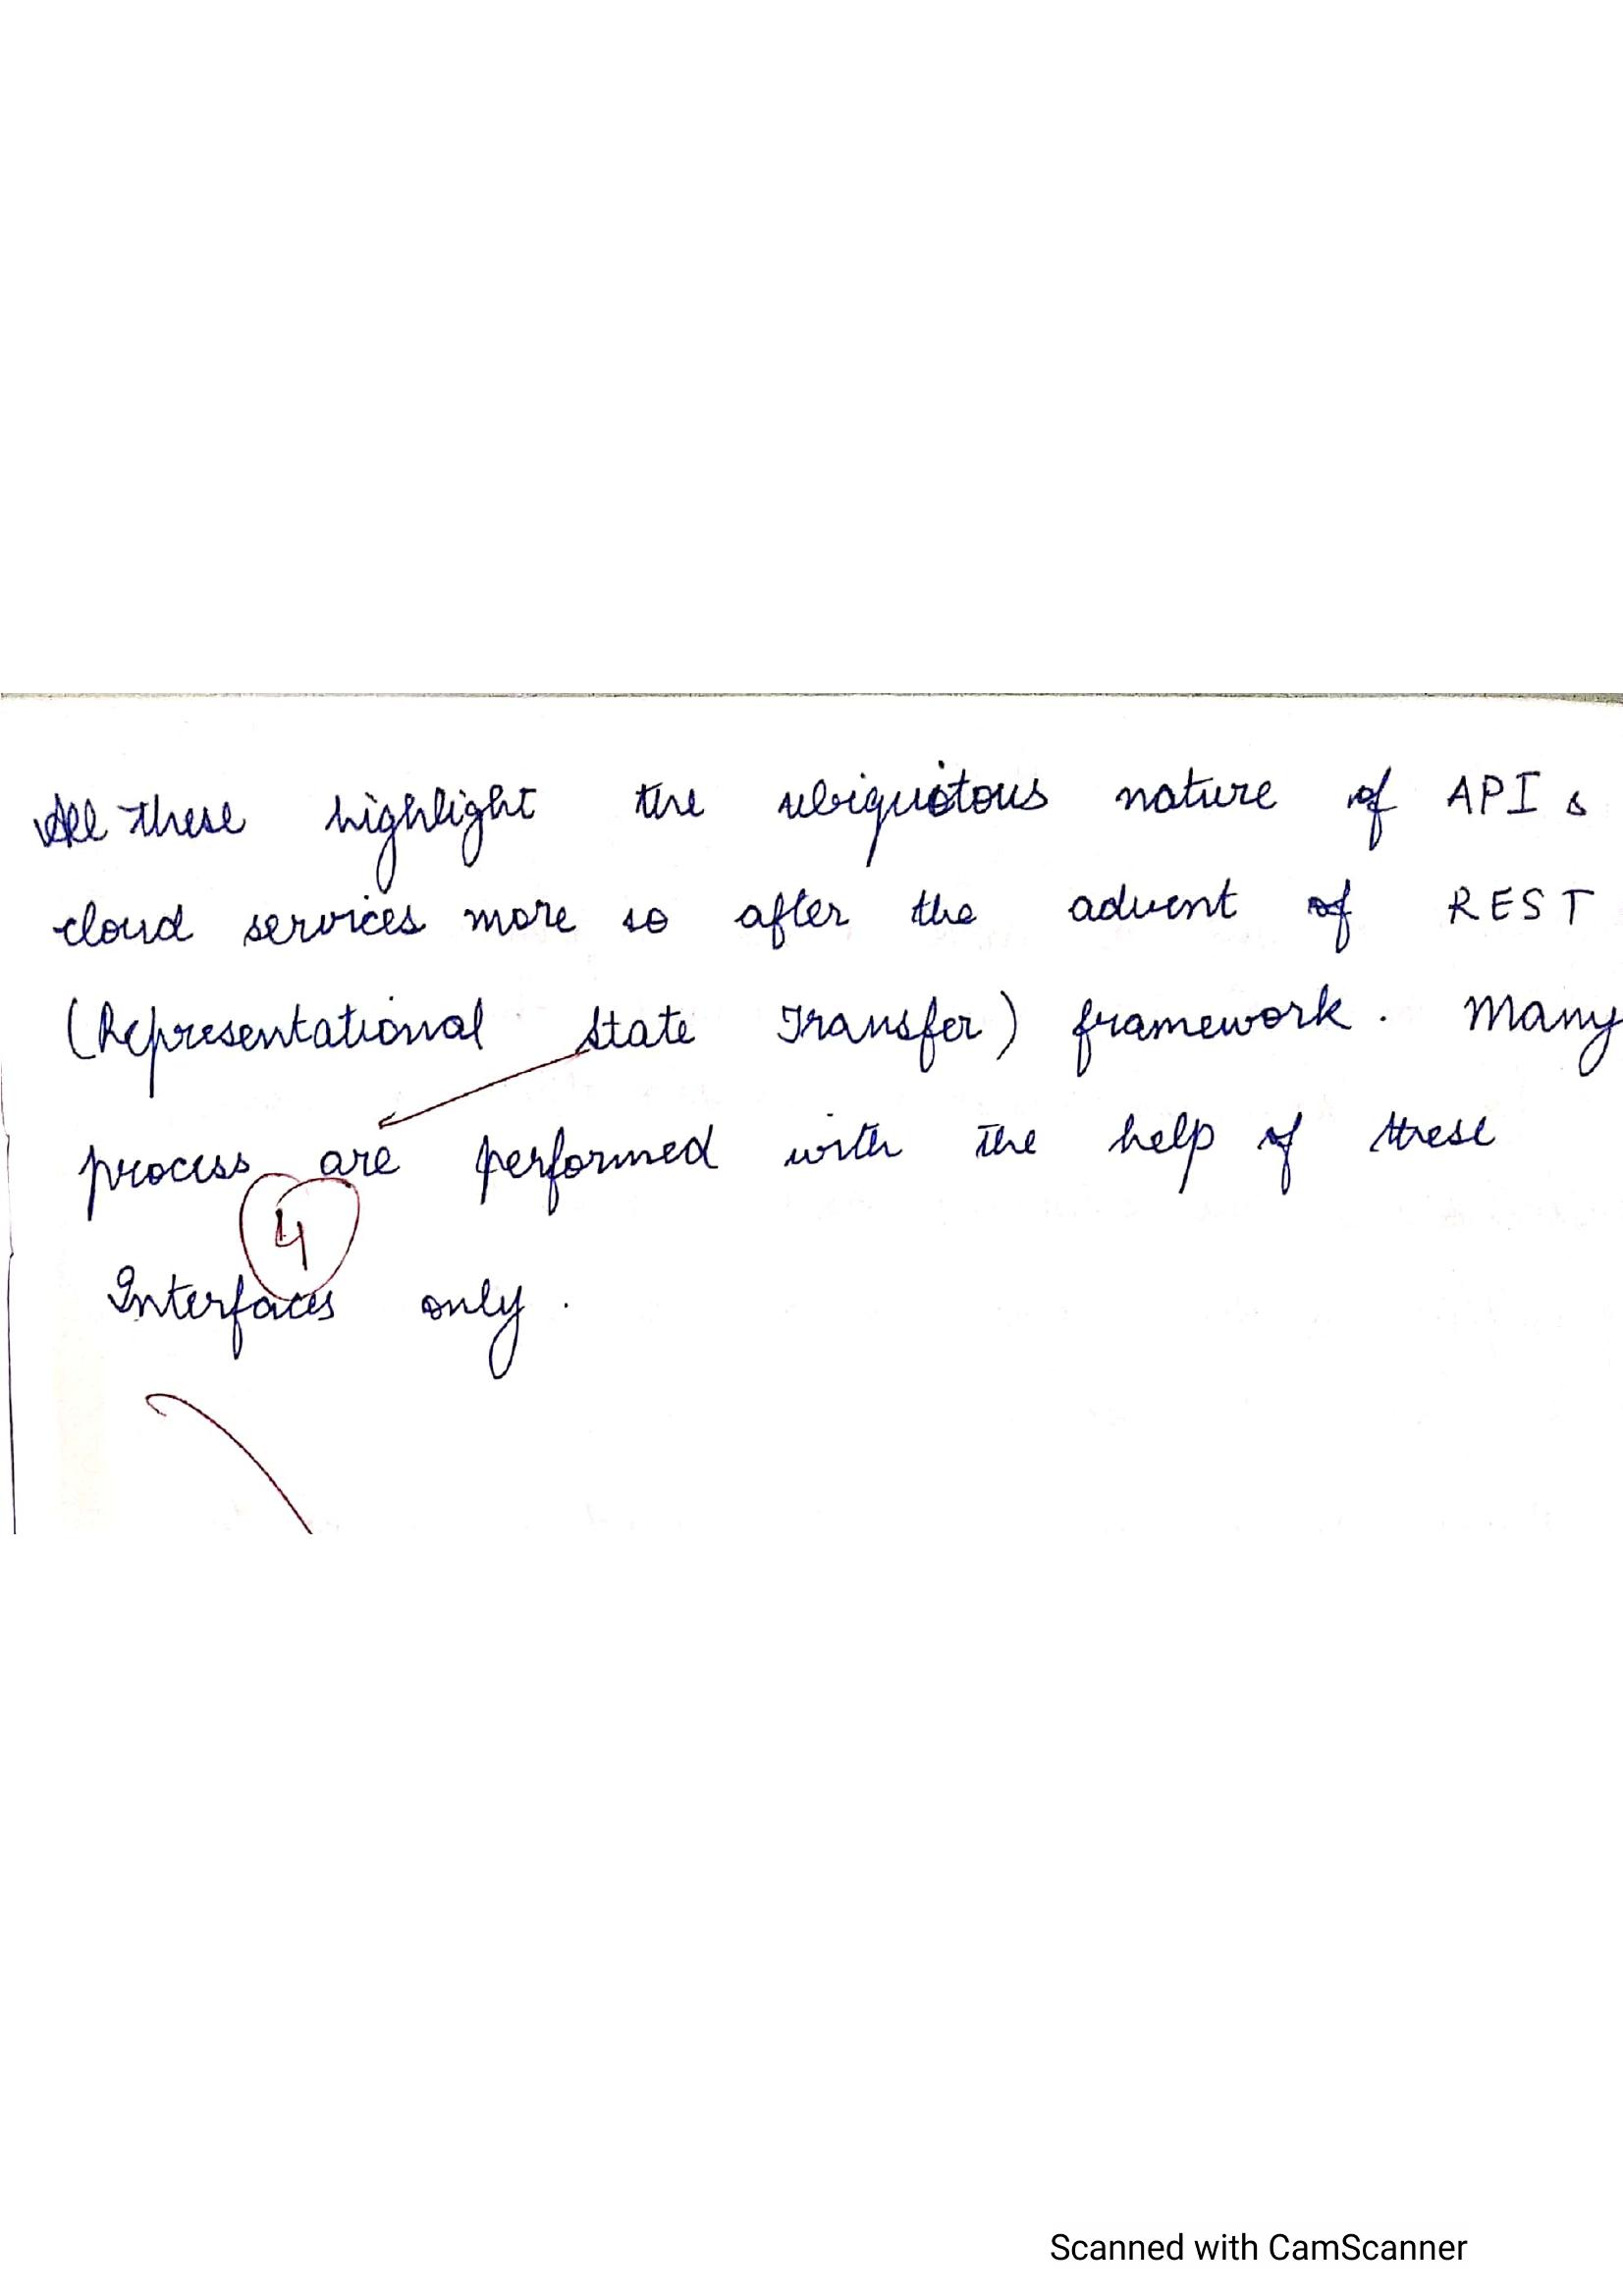 All these highlight the ubiquitous nature of API &
cloud services more so after the advent of REST
(Representational State Transfer) framework. Many
process are performed with the help of these
4
Interfaces only.
Scanned with CamScanner